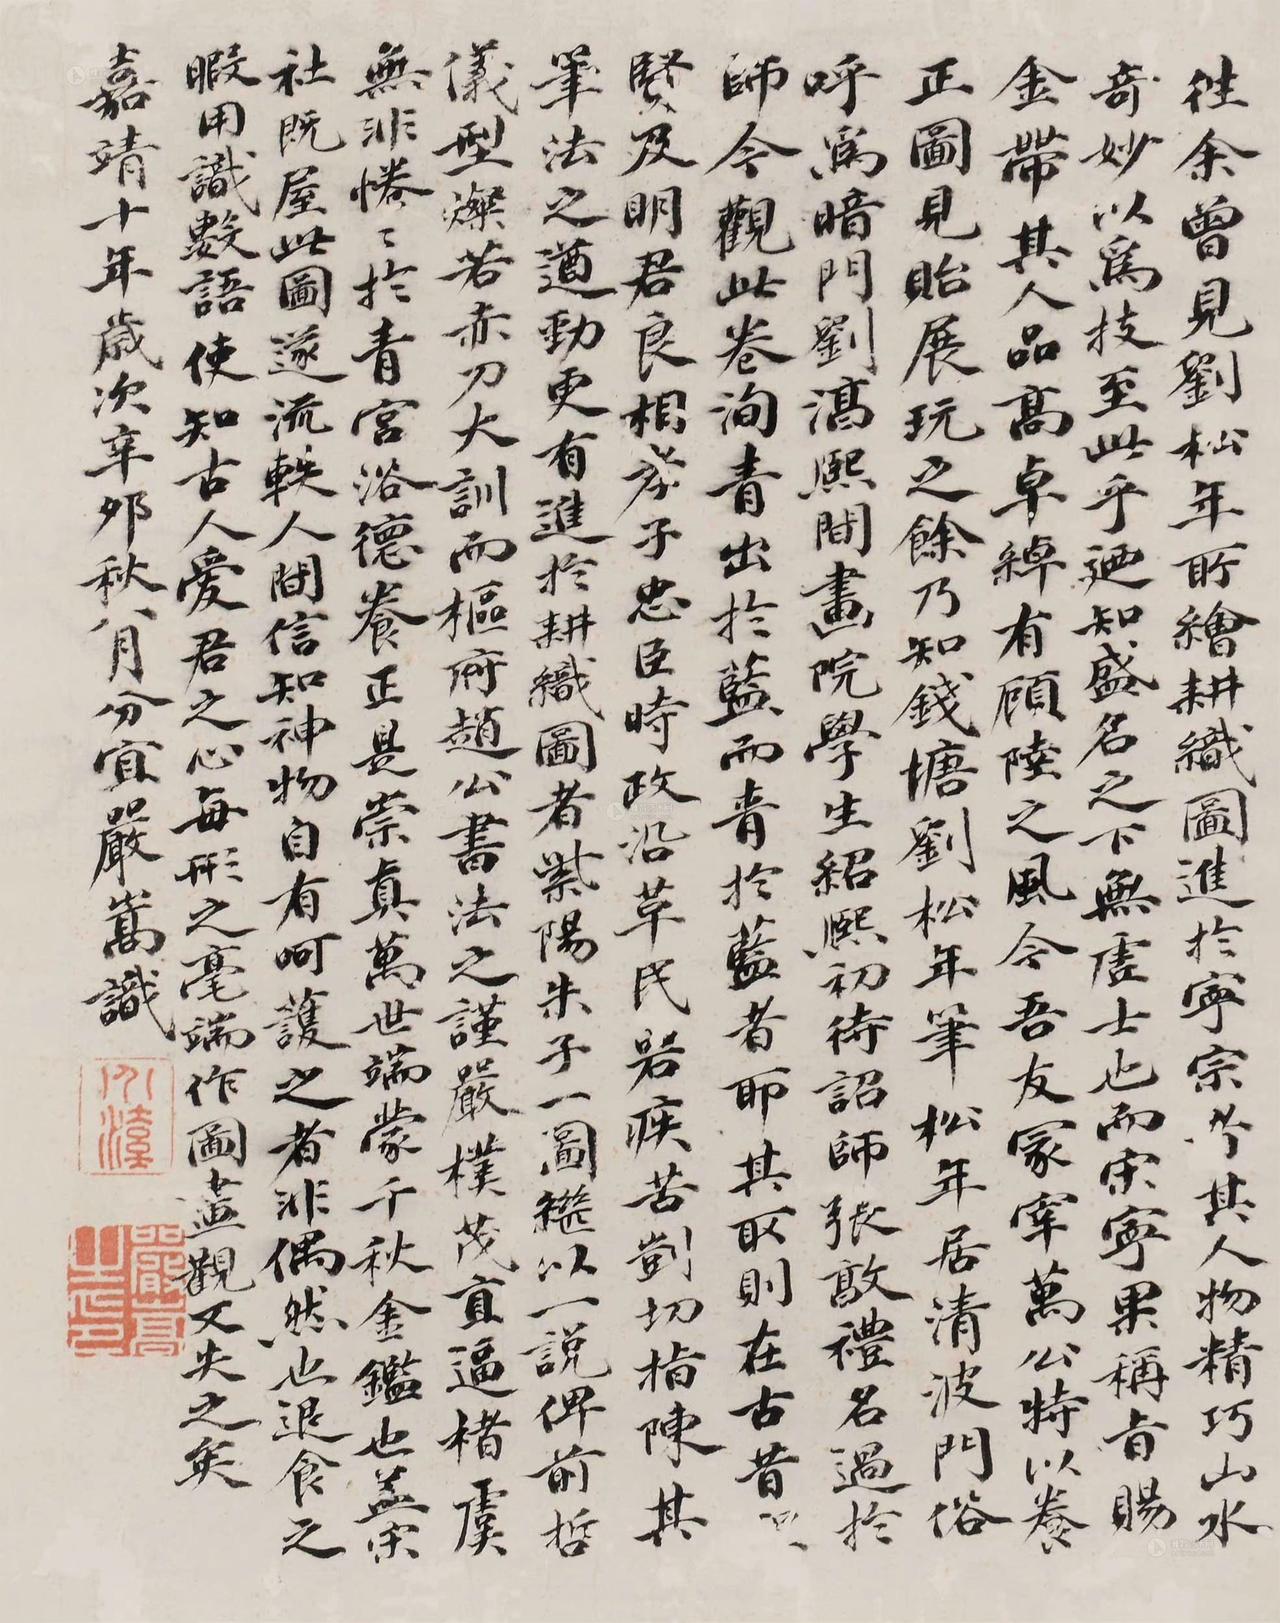 往余曾見劉松年所繪耕織圖進於寧宗於其人物精巧山水
奇妙以為技至此乎廼知盛名之下無虛士也而宋寧果稱旨賜
金帶其人品高卓綽有顧陸之風今吾友冢宰萬公特以養
正圖見貽展玩之餘乃知錢塘劉松年筆松年居清波門俗
呼為暗門劉淳熙間畫院學生紹熙初待詔師張敦禮名過於
師今觀此卷洵青出於藍而青於藍者耶其取則在古昔
賢及明君良相孝子忠臣時政沿革民器疾苦剴切指陳其
筆法之遒勁更有進於耕織圖者紫陽朱子一圖繼以一說俾前哲
儀型燦若赤刀大訓而樞府趙公書法之謹嚴樸茂直逼楮虞
無非惓〻於青宮浴德養正是崇真萬世端蒙千秋金鑑也蓋宋
社既屋此圖遂流軼人間信知神物自有呵護之者非偶然也退食之
暇用識數語使知古人愛君之心每形之毫端作圖畫觀又失之矣
嘉靖十年歲次辛卯秋八月分宜嚴嵩識
介溪
嚴嵩之印